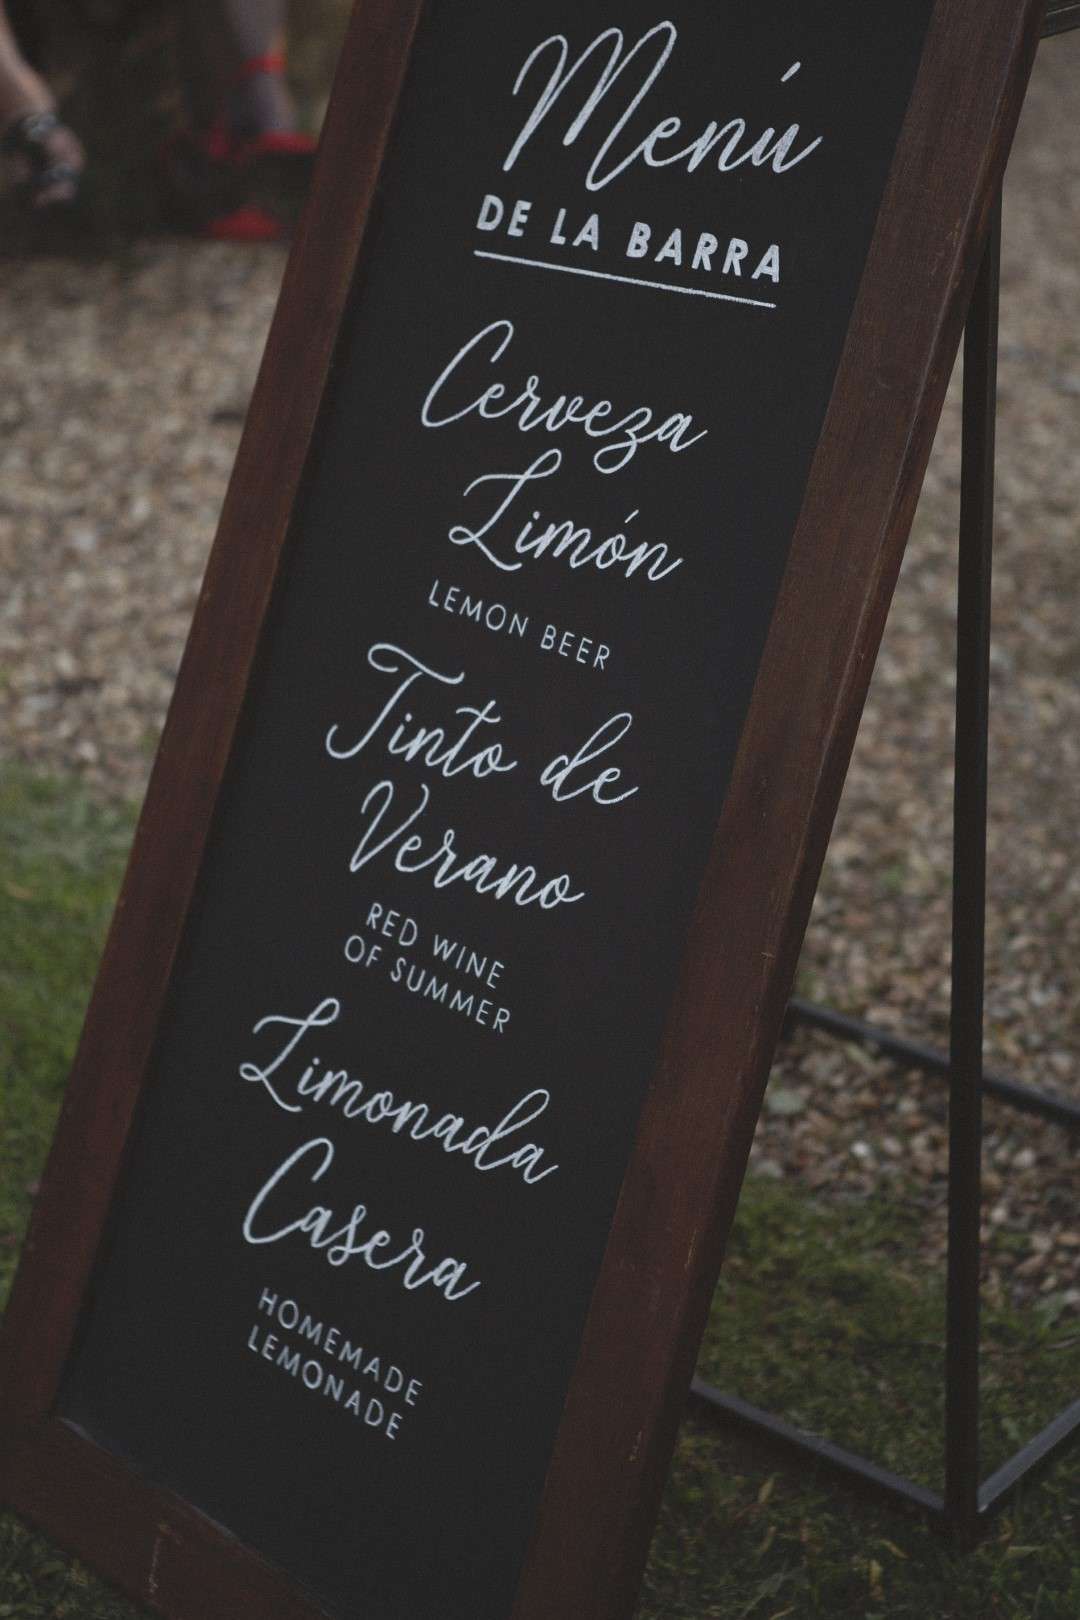 Menú
DE LA BARRA
Cerveza
Limón
LEMON BEER
Tinto de
Verano
RED WINE
OF SUMMER
Limonada
Casera
HOMEMADE
LEMONADE